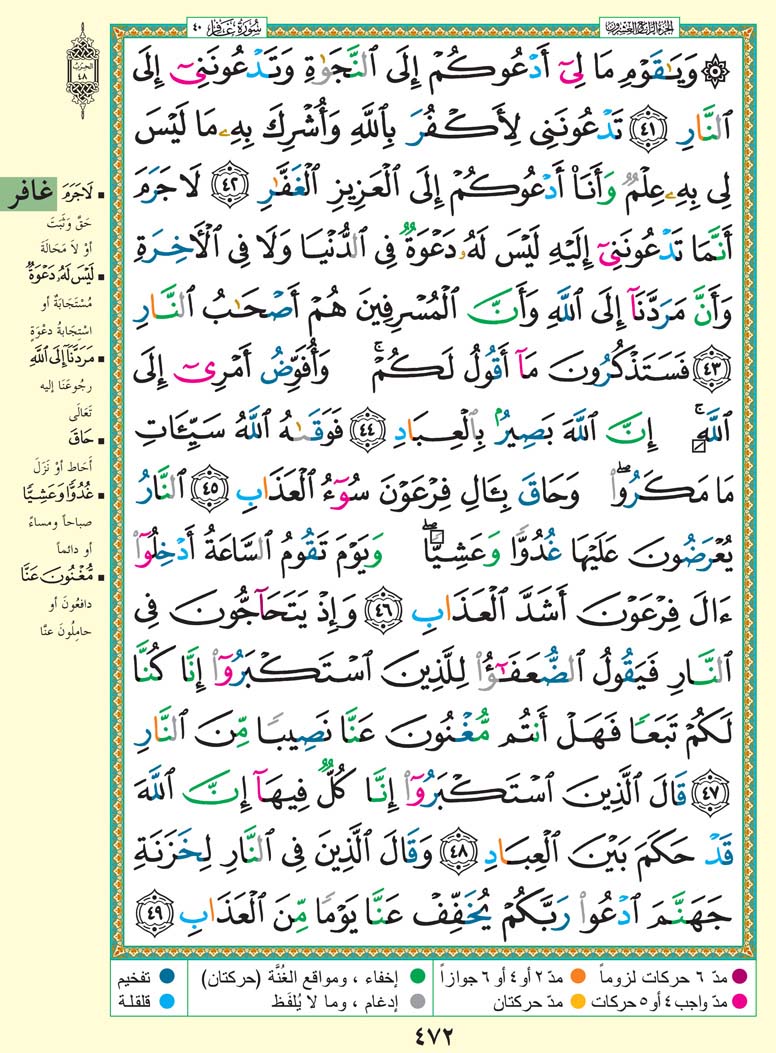 الجزء الرابع والعشرون
سورة غافر ٤٠
۞ وَيَٰقَوْمِ مَا لِىٓ أَدْعُوكُمْ إِلَى ٱلنَّجَوٰةِ وَتَدْعُونَنِىٓ إِلَى
ٱلنَّارِ ٤١ تَدْعُونَنِى لِأَكْفُرَ بِٱللَّهِ وَأُشْرِكَ بِهِۦ مَا لَيْسَ
لِى بِهِۦ عِلْمٌ وَأَنَا۠ أَدْعُوكُمْ إِلَى ٱلْعَزِيزِ ٱلْغَفَّٰرِ ٤٢ لَا جَرَمَ
أَنَّمَا تَدْعُونَنِىٓ إِلَيْهِ لَيْسَ لَهُۥ دَعْوَةٌ فِى ٱلدُّنْيَا وَلَا فِى ٱلْأَخِرَةِ
وَأَنَّ مَرَدَّنَآ إِلَى ٱللَّهِ وَأَنَّ ٱلْمُسْرِفِينَ هُمْ أَصْحَٰبُ ٱلنَّارِ
٤٣ فَسَتَذْكُرُونَ مَآ أَقُولُ لَكُمْ ۚ وَأُفَوِّضُ أَمْرِىٓ إِلَى
ٱللَّهِ ۚ إِنَّ ٱللَّهَ بَصِيرٌۢ بِٱلْعِبَادِ ٤٤ فَوَقَىٰهُ ٱللَّهُ سَيِّـَٔاتِ
مَا مَكَرُوا۟ ۖ وَحَاقَ بِـَٔالِ فِرْعَوْنَ سُوٓءُ ٱلْعَذَابِ ٤٥ ٱلنَّارُ
يُعْرَضُونَ عَلَيْهَا غُدُوًّا وَعَشِيًّا ۖ وَيَوْمَ تَقُومُ ٱلسَّاعَةُ أَدْخِلُوٓا۟
ءَالَ فِرْعَوْنَ أَشَدَّ ٱلْعَذَابِ ٤٦ وَإِذْ يَتَحَآجُّونَ فِى
ٱلنَّارِ فَيَقُولُ ٱلضُّعَفَٰٓؤُا۟ لِلَّذِينَ ٱسْتَكْبَرُوٓا۟ إِنَّا كُنَّا
لَكُمْ تَبَعًا فَهَلْ أَنتُم مُّغْنُونَ عَنَّا نَصِيبًا مِّنَ ٱلنَّارِ
٤٧ قَالَ ٱلَّذِينَ ٱسْتَكْبَرُوٓا۟ إِنَّا كُلٌّ فِيهَآ إِنَّ ٱللَّهَ
قَدْ حَكَمَ بَيْنَ ٱلْعِبَادِ ٤٨ وَقَالَ ٱلَّذِينَ فِى ٱلنَّارِ لِخَزَنَةِ
جَهَنَّمَ ٱدْعُوا۟ رَبَّكُمْ يُخَفِّفْ عَنَّا يَوْمًا مِّنَ ٱلْعَذَابِ ٤٩
الحزب
٤٨
غافر
▪ لَا جَرَمَ
حَقَّ وَثَبَتَ
أوْ لاَ مَحَالَةَ
▪ لَيْسَ لَهُۥ دَعْوَةٌ
مُسْتَجَابَةٌ أو
اسْتِجَابَةُ دعْوَةٍ
▪ مَرَدَّنَآ إِلَى ٱللَّهِ
رجُوعَنَا إليه
تَعَالَى
▪ حَاقَ
أحَاط أوْ نَزَلَ
▪ غُدُوًّا وَعَشِيًّا
صباحاً ومساءً
أو دائماً
▪ مُّغْنُونَ عَنَّا
دافعُونَ أو
حامِلُونَ عنَّا
مدّ ٦ حركات لزوماً
مدّ ٢ أو ٤ أو ٦ جوازاً
إخفاء ، ومواقع الغُنَّة (حركتان)
تفخيم
مدّ واجب ٤ أو ٥ حركات
مدّ حركتان
إدغام ، وما لا يُلفَظ
قلقلة
٤٧٢